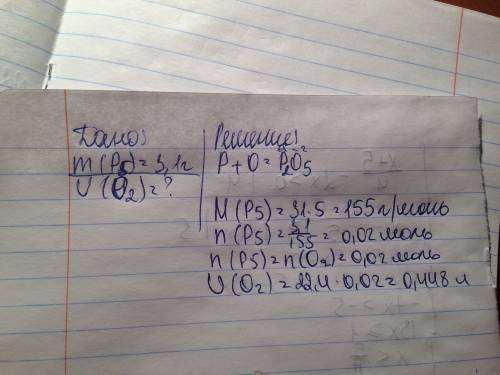 Дано:
m(P5)=3,1г
V(O2)=?
Решение:
P+O=P2O5
M(P5)=31·5=155г/моль
n(P5)=31/155=0,02моль
n(P5)=n(O2)=0,02моль
V(O2)=22,4·0,02=0,448л